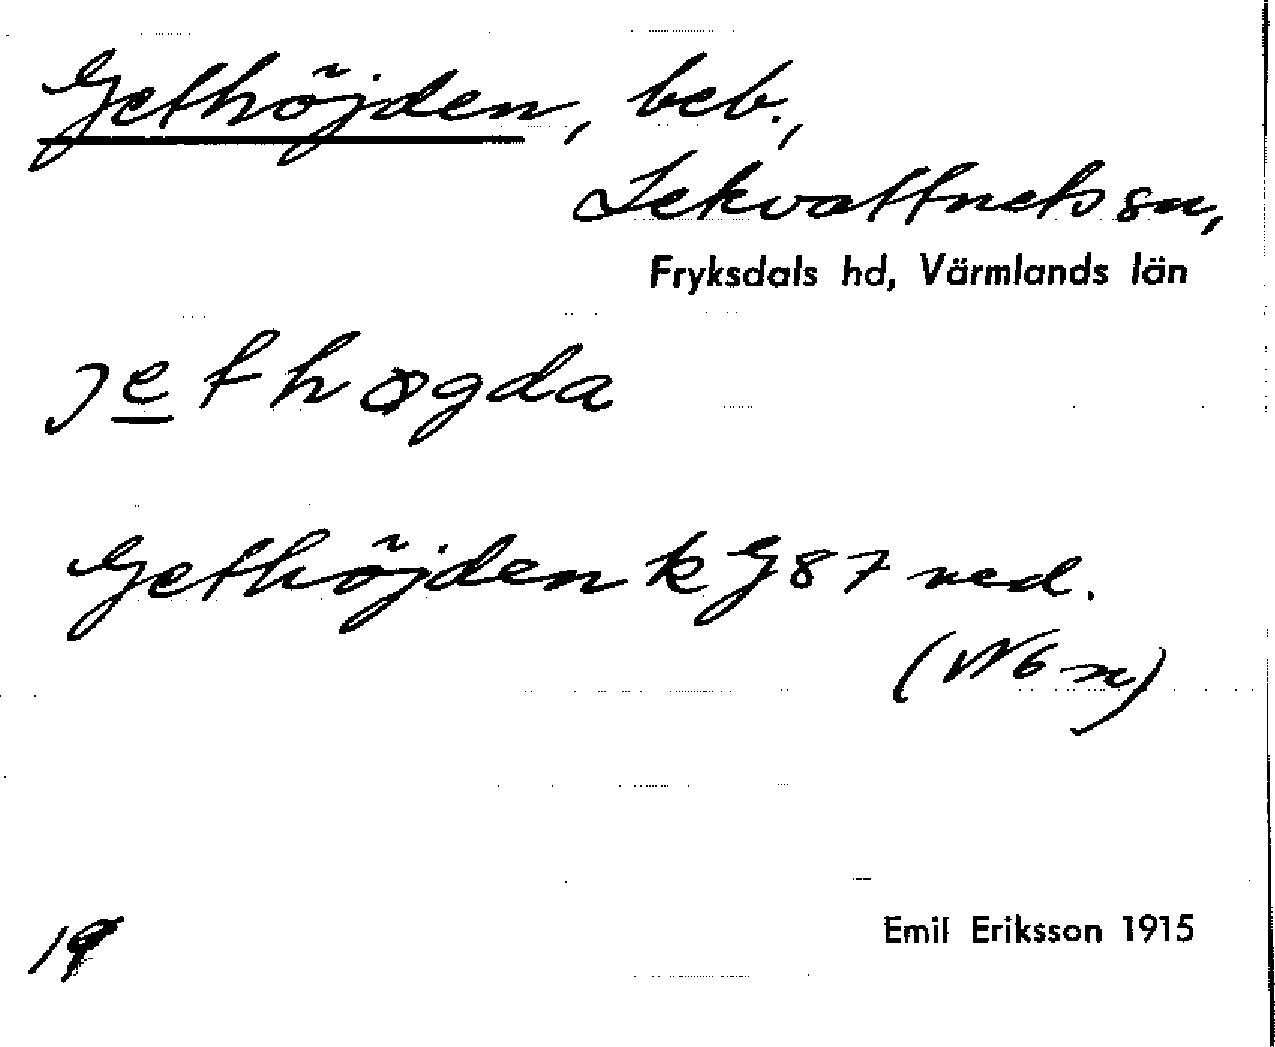 Gethöjden, beb.,
Lekvattnets sn,
Fryksdals hd, Värmlands län
jethøgda
Gethöjden k G87 ned.
(W6 n)
19
Emil Eriksson 1915